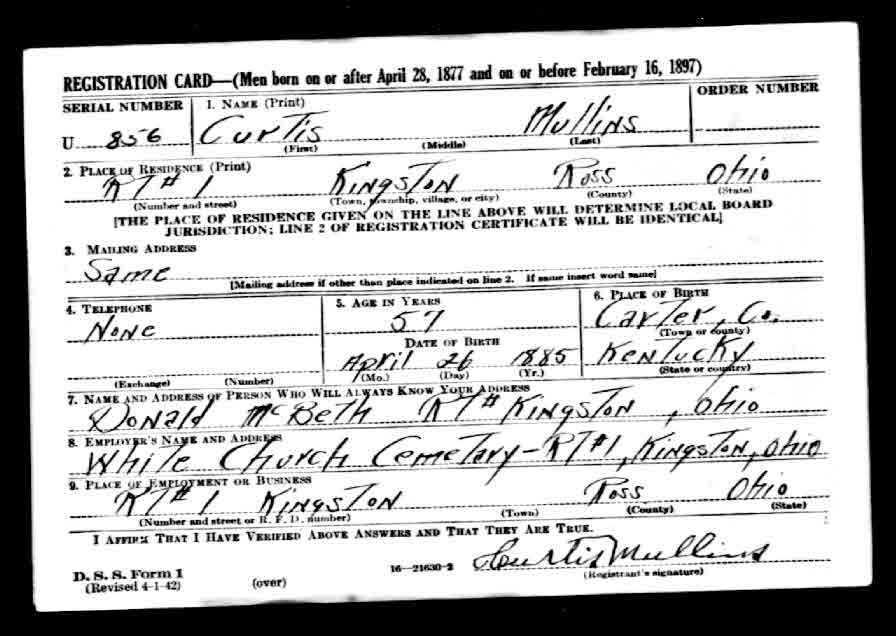 REGISTRATION CARD—(Men born on or after April 28, 1877 and on or before February 16, 1897)
SERIAL NUMBER 1. NAME (Print) ORDER NUMBER
U 856 Curtis Mullins
(First) (Middle) (Last)
2. PLACE OF RESIDENCE (Print)
RT# 1 Kingston Ross Ohio
(Number and street) (Town, township, village, or city) (County) (State)
[THE PLACE OF RESIDENCE GIVEN ON THE LINE ABOVE WILL DETERMINE LOCAL BOARD
JURISDICTION; LINE 2 OF REGISTRATION CERTIFICATE WILL BE IDENTICAL]
3. MAILING ADDRESS
Same
[Mailing address if other than place indicated on line 2. If same insert word same]
4. TELEPHONE 5. AGE IN YEARS 6. PLACE OF BIRTH
None 57 Carter, Co.
(Town or county)
DATE OF BIRTH
April 26 1885 Kentucky
(Exchange) (Number) (Mo.) (Day) (Yr.) (State or country)
7. NAME AND ADDRESS OF PERSON WHO WILL ALWAYS KNOW YOUR ADDRESS
Donald McBeth RT# Kingston, Ohio
8. EMPLOYER'S NAME AND ADDRESS
White Church Cemetary - RT#1, Kingston, Ohio
9. PLACE OF EMPLOYMENT OR BUSINESS
RT# 1 Kingston Ross Ohio
(Number and street or R. F. D. number) (Town) (County) (State)
I AFFIRM THAT I HAVE VERIFIED ABOVE ANSWERS AND THAT THEY ARE TRUE.
Curtis Mullins
D. S. S. Form 1 16—21630-2 (Registrant's signature)
(Revised 4-1-42) (over)